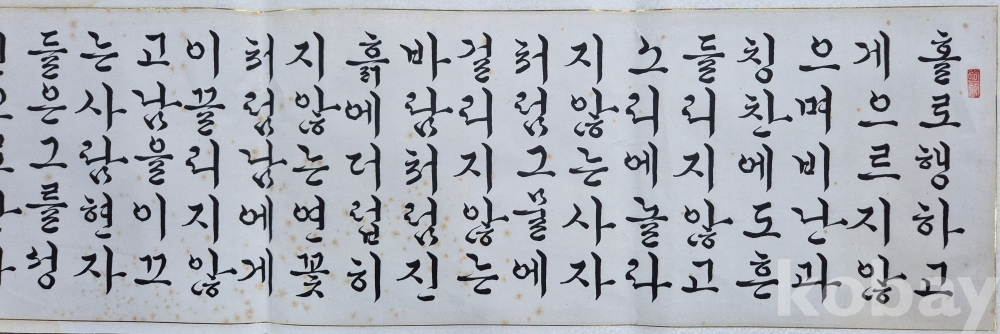 홀로행하고
게으르지않
으며비난과
칭찬에도흔
들리지않고
소리에놀라
지않는사자
처럼그물에
걸리지않는
바람처럼진
흙에더럽히
지않는연꽃
처럼남에게
이끌리지않
고남을이끄
는사람현자
들은그를성
kobay